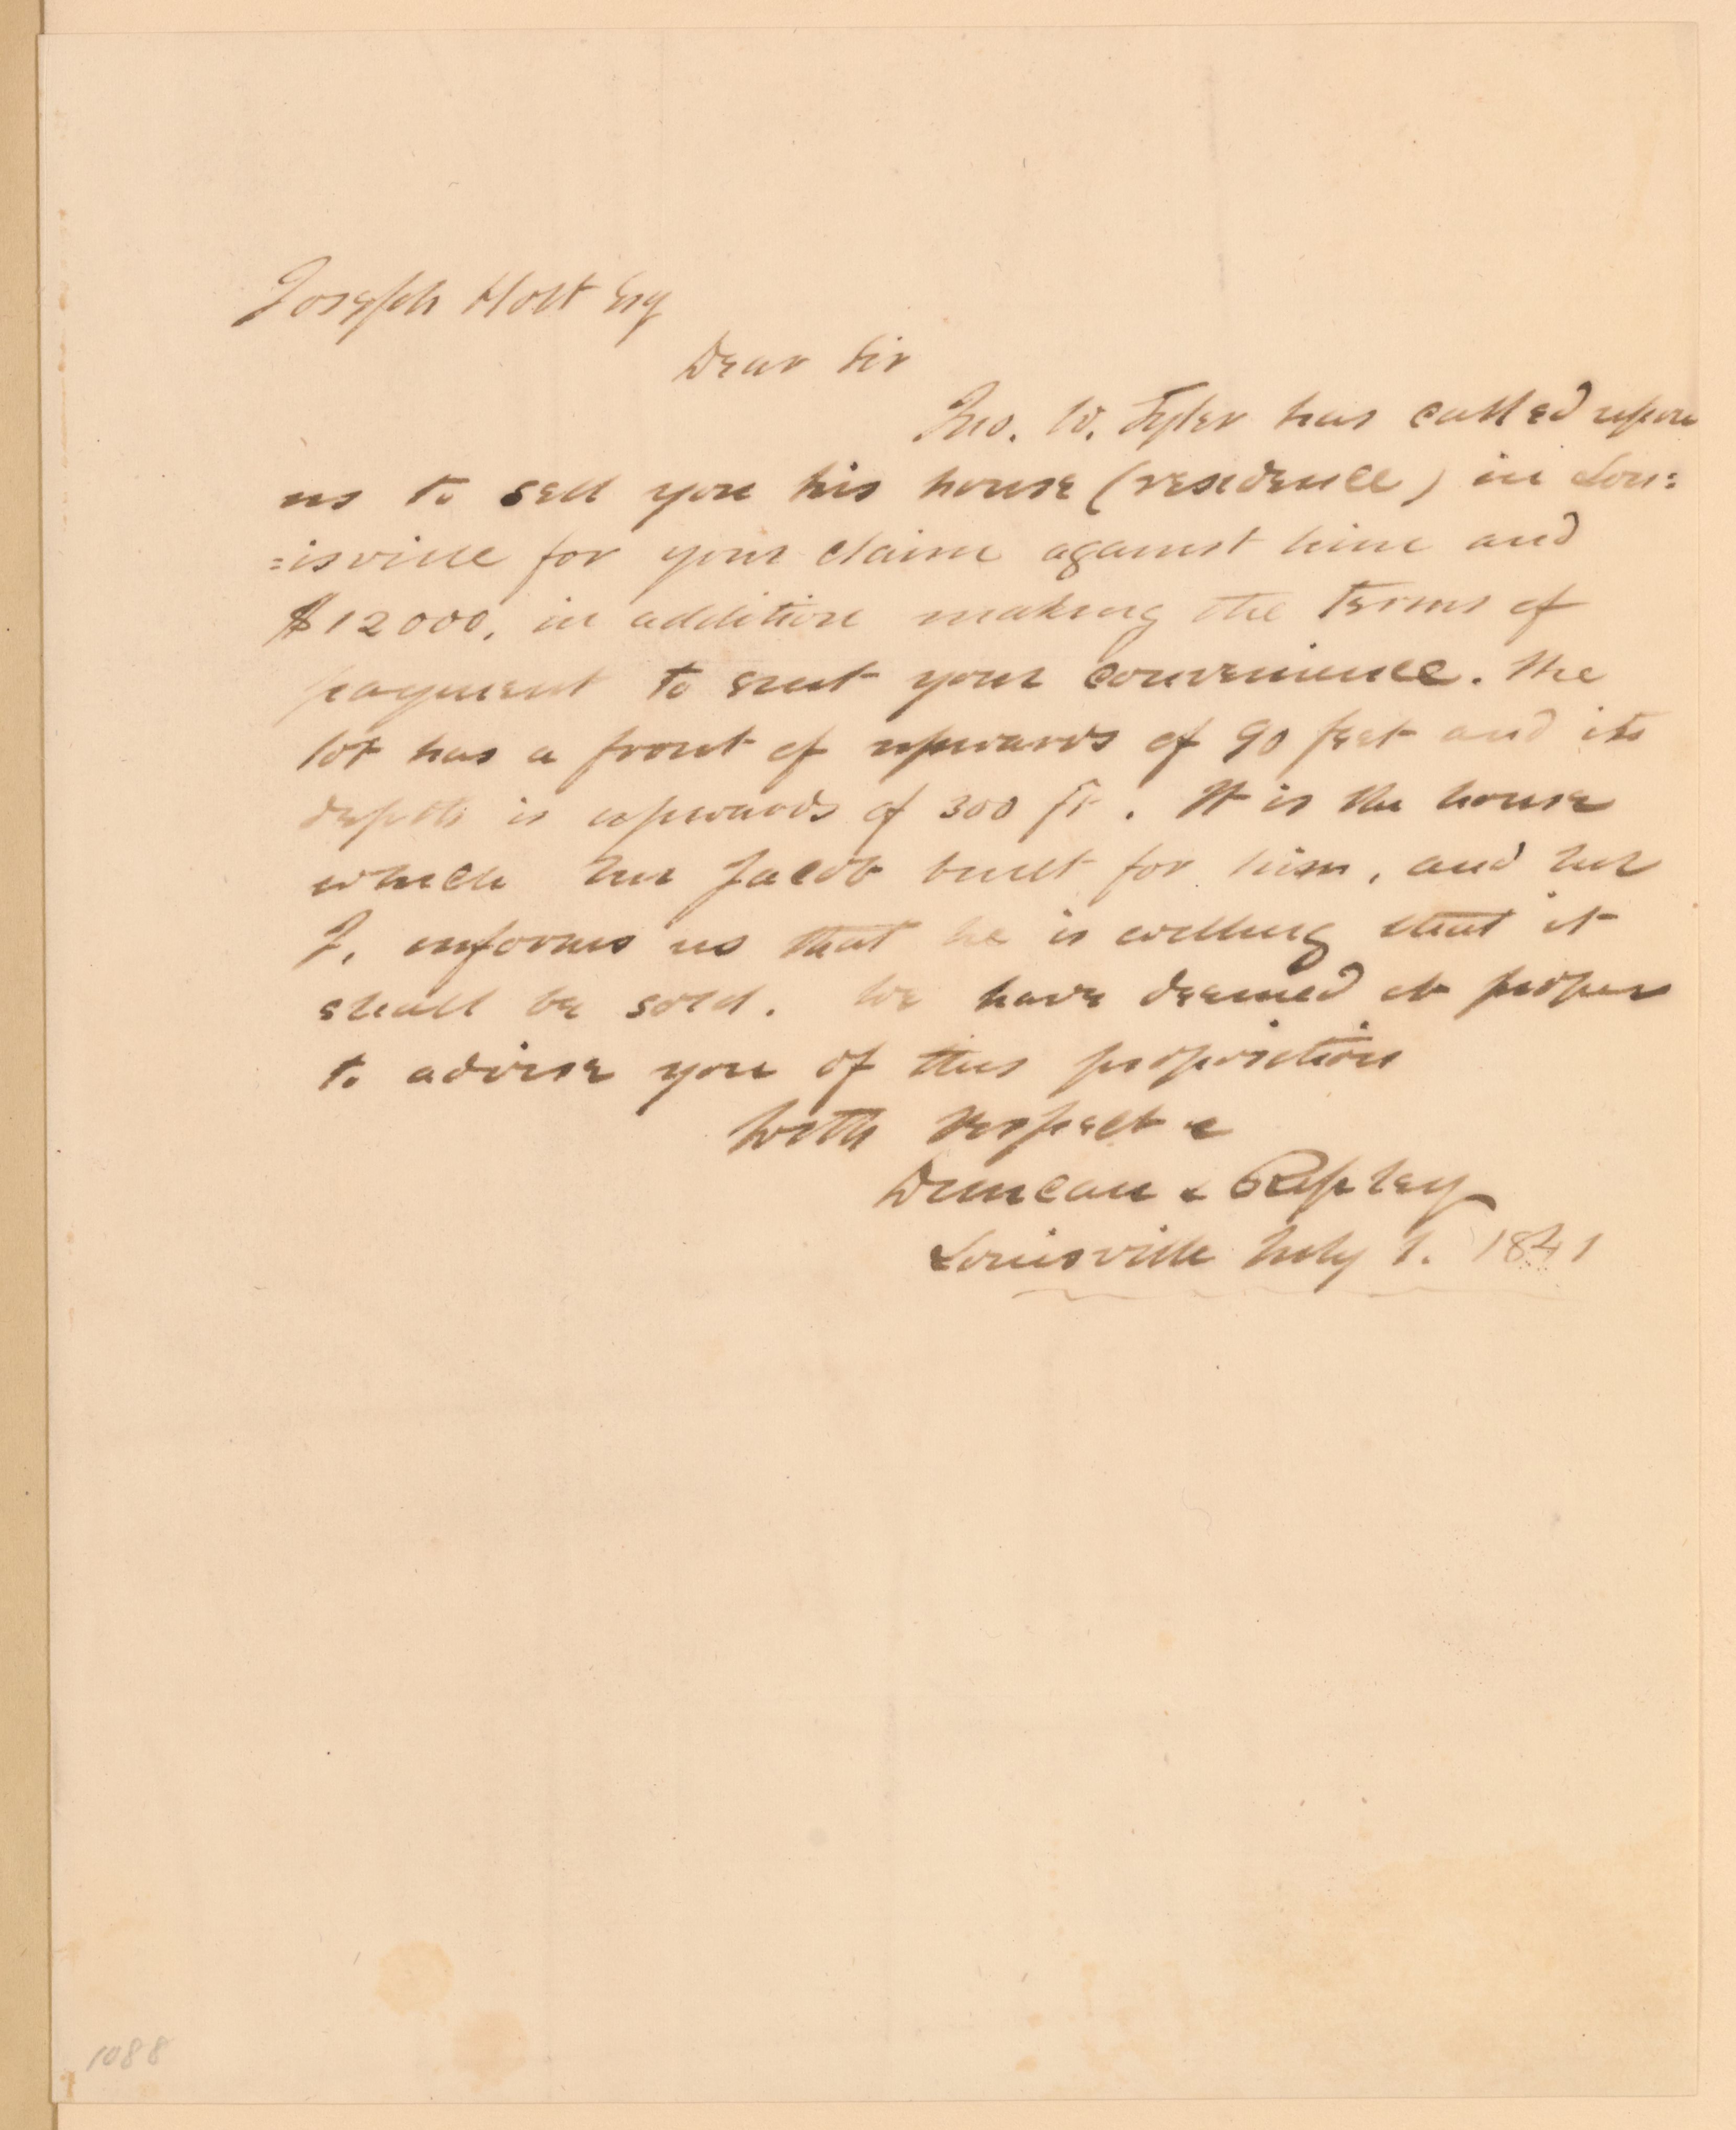 Joseph Holt Esq
Dear Sir
Jno. W. Tyler has called upon
us to sell you his house (residence) in Lou=
=isville for your claim against him and
$12000, in addition making the terms of
payment to suit your convenience. The
lot has a front of upwards of 90 feet and its
depth is upwards of 300 ft. It is the house
which Mr Jacob built for him, and Mr
J. informs us that he is willing that it
shall be sold. We have deemed it proper
to advise you of this proposition
With respect &
Duncan & Ripley
Louisville July 1. 1841
1088